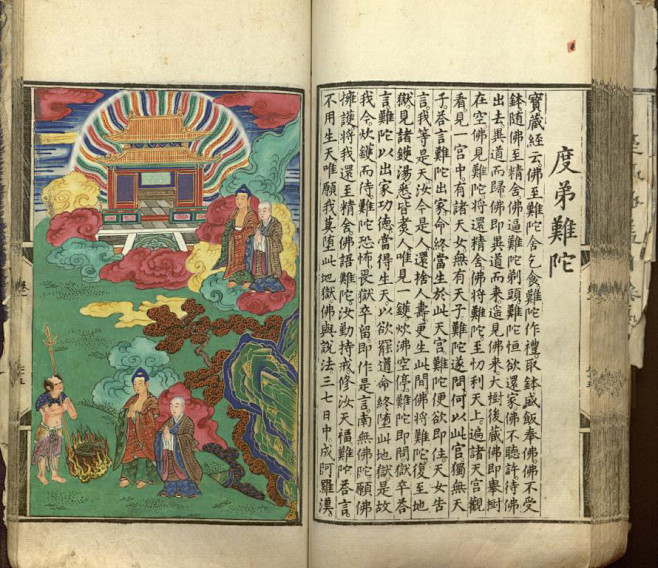 度弟難陀
寶藏經云佛至難陀舍乞食難陀作禮取鉢盛飯奉佛佛不受
鉢隨佛至精舍佛逼難陀剃頭難陀恒欲還家佛不聽許待佛
出去異道而歸佛即異道而來遥見佛來大樹後藏佛即舉樹
在空佛見難陀將還精舍佛將難陀至忉利天上遍諸天宮觀
看見一宮中有諸天女無有天子難陀遂問何以此宮獨無天
子荅言難陀出家命終當生於此天宮難陀便欲即住天女告
言我等是天汝今是人還捨人壽更生此間佛將難陀復至地
獄見諸鑊湯悉皆煮人唯見一鑊炊佛空停難陀即問獄卒荅
言難陀以出家功德當得生天以欲罷道命終墮此地獄是故
我今炊鑊而待難陀恐怖畏獄卒留即作是言南無佛陀願佛
擁護將我還至精舍佛語難陀汝勤持戒修汝天福難陀荅言
不用生天唯願我莫墮此地獄佛與說法三七日中成阿羅漢